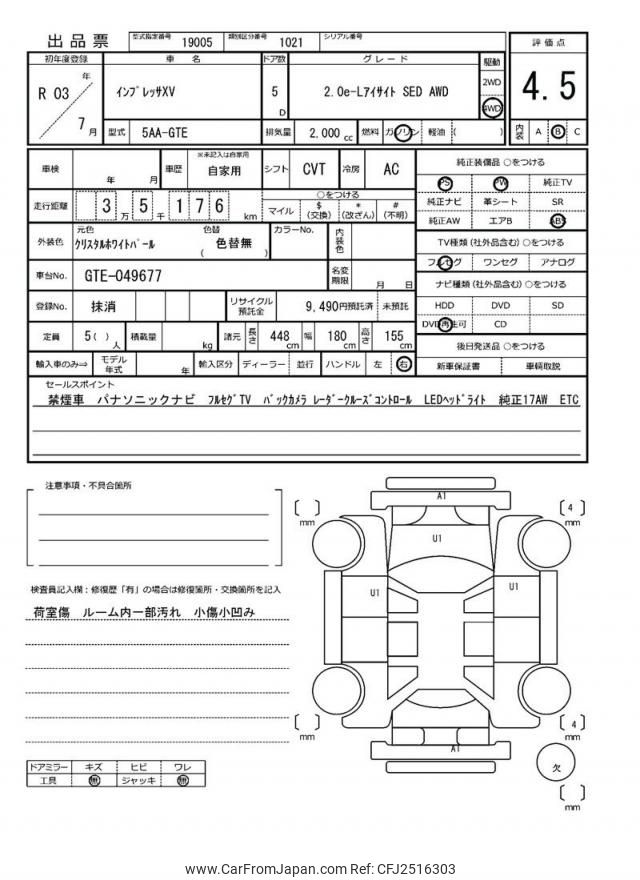 出品票 型式指定番号 19005 類別区分番号 1021 シリアル番号
初年度登録 車名 ドア数 グレード 駆動 評価点
R 03 年 7 月 ｲﾝﾌﾟﾚｯｻXV 5 D 2.0e-Lｱｲｻｲﾄ SED AWD 2WD 4WD 4.5
型式 5AA-GTE 排気量 2,000 cc 燃料 ガソリン 軽油 ( ) 内装 A B C
車検 年 月 車歴 ※未記入は自家用 自家用 シフト CVT 冷房 AC
走行距離 3 万 5 千 1 7 6 km ○をつける マイル $ (交換) * (改ざん) # (不明)
外装色 元色 ｸﾘｽﾀﾙﾎﾜｲﾄﾊﾟｰﾙ 色替 ( 色替無 ) カラーNo. 内装色
車台No. GTE-049677 名変期限 月 日
登録No. 抹消 リサイクル預託金 9,490円預託済 未預託
定員 5( ) 人 積載量 kg 諸元 長さ 448 cm 幅 180 cm 高さ 155 cm
輸入車のみ⇒ モデル年式 年 輸入区分 ディーラー 並行 ハンドル 左 右
純正装備品 ○をつける
PS PW 純正TV
純正ナビ 革シート SR
純正AW エアB ABS
TV種類 (社外品含む) ○をつける
フルセグ ワンセグ アナログ
ナビ種類 (社外品含む) ○をつける
HDD DVD SD
DVD再生可 CD
後日発送品 ○をつける
新車保証書 車輌取説
セールスポイント
禁煙車 パナソニックナビ ﾌﾙｾｸﾞTV ﾊﾞｯｸｶﾒﾗ ﾚｰﾀﾞｰｸﾙｰｽﾞｺﾝﾄﾛｰﾙ LEDﾍｯﾄﾞﾗｲﾄ 純正17AW ETC
注意事項・不具合箇所
検査員記入欄：修復歴「有」の場合は修復箇所・交換箇所を記入
荷室傷 ルーム内一部汚れ 小傷小凹み
ドアミラー キズ ヒビ ワレ
工具 無 ジャッキ 無
A1
[ ] mm
[ 4 ] mm
U1
U1 U1
[ ] mm
[ 4 ] mm
A1
欠
[ ] mm
www.CarFromJapan.com Ref: CFJ2516303